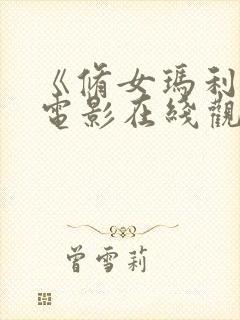 《脩女瑪利
電影在綫觀
曾雪莉